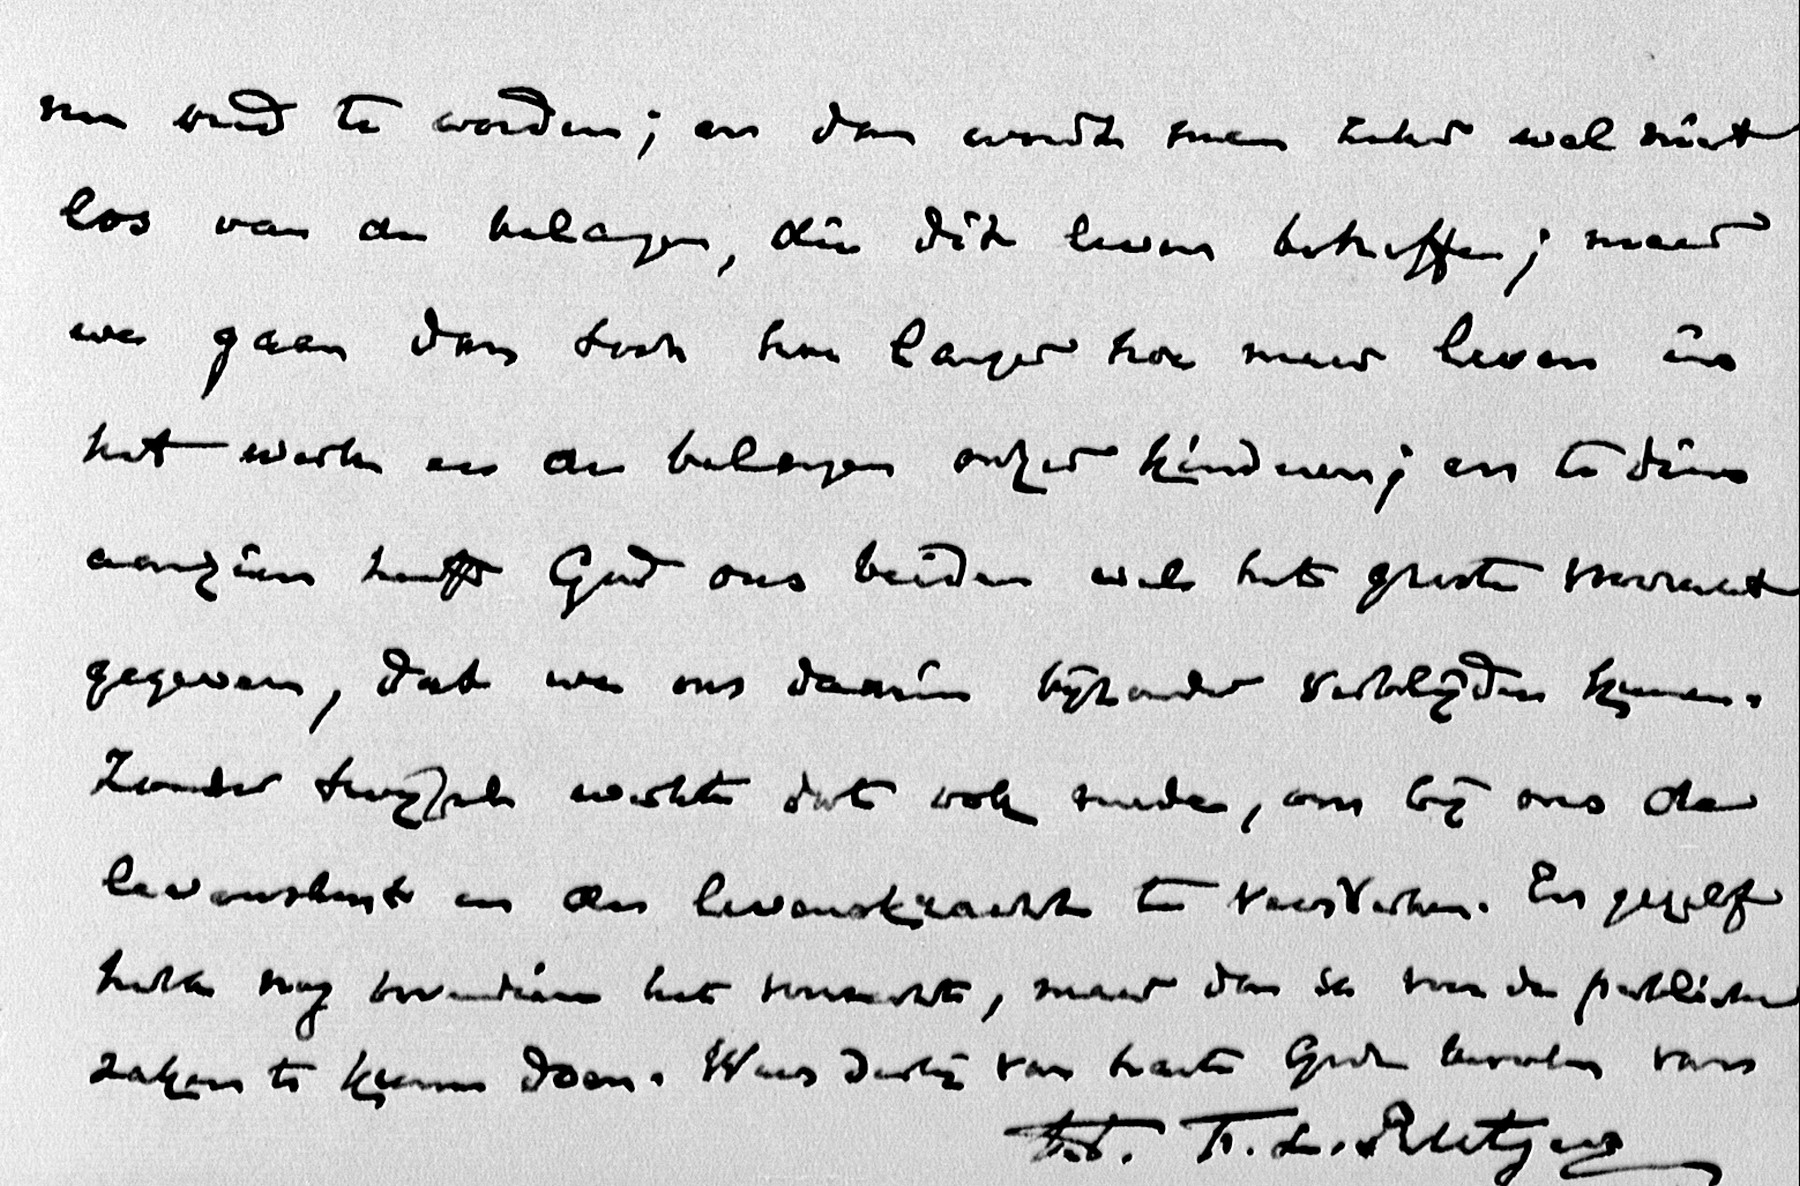 oud te worden; en dan wordt men zeker wel niet
los van de belangen, die dit leven betreffen; maar
we gaan dan toch hoe langer hoe meer leven in
het werk en de belangen onzer kinderen; en te dien
aanzien heeft God ons beiden wel het grootste voorrecht
gegeven, dat we ons daarin bijzonder verblijden kunnen.
Zonder twijfel werkte dat ook mede, om bij ons de
levenslust en de levenskracht te versterken. En gezelf
hebt nog bovendien het voorrecht, maar dan in van de publieke
zaken te kunnen doen. Wees daarbij van harte Gode bevolen van
F. L. Rutgers